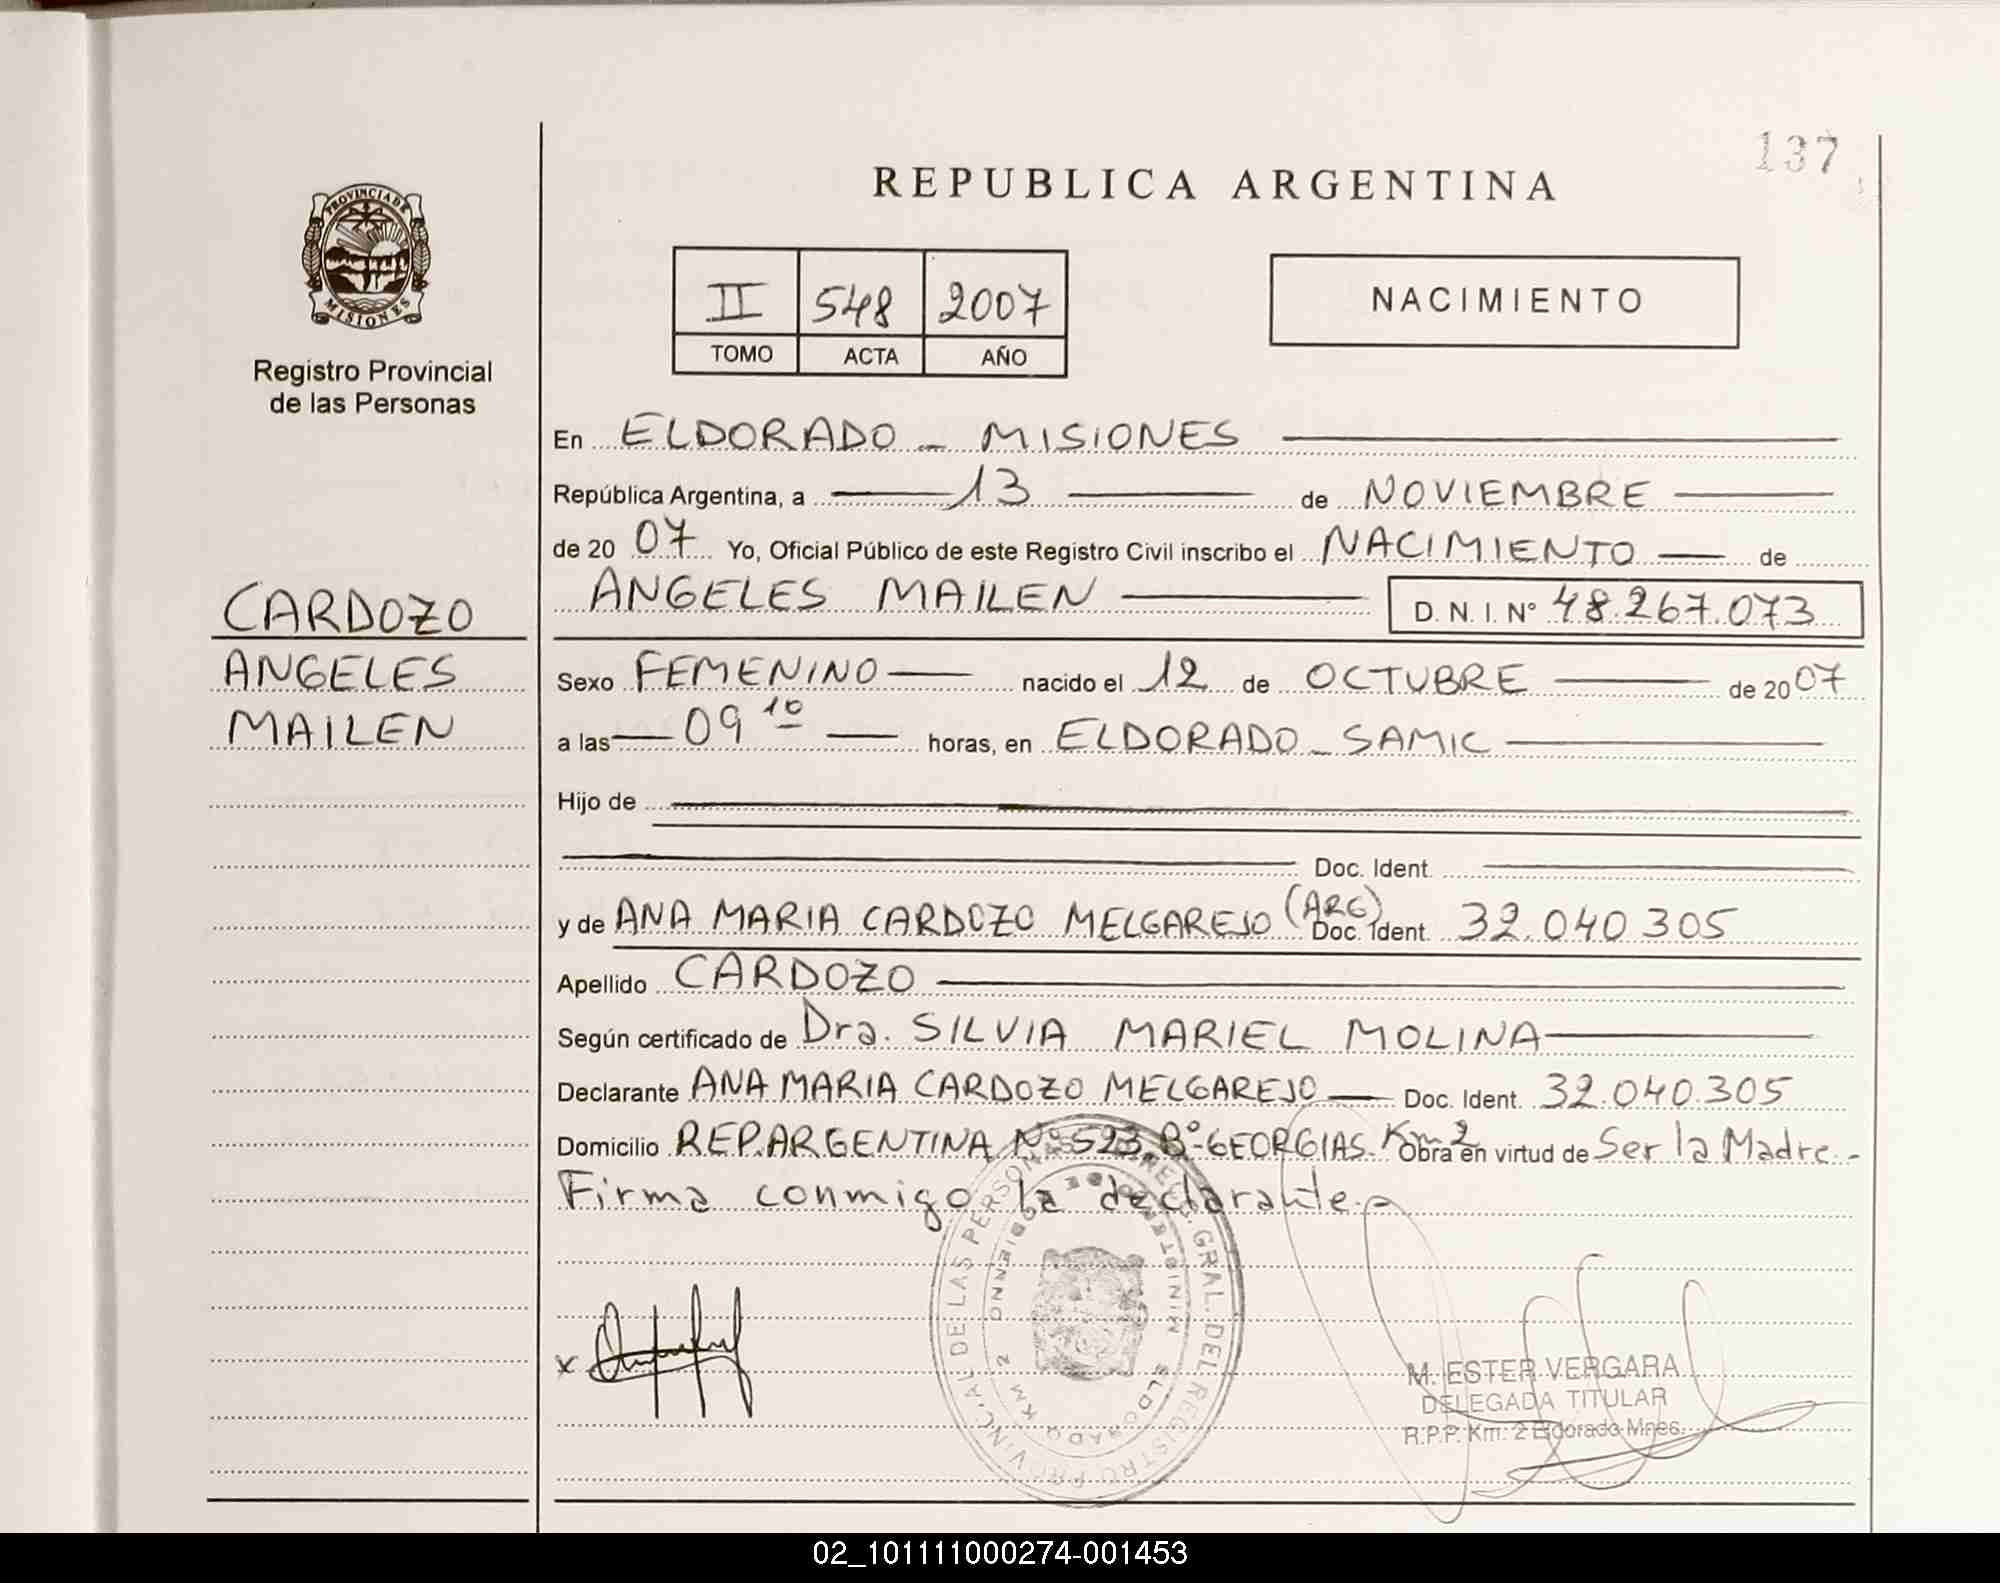 137
PROVINCIA DE
MISIONES
Registro Provincial
de las Personas
CARDOZO
ANGELES
MAILEN
REPUBLICA ARGENTINA
II 548 2007
TOMO ACTA AÑO
NACIMIENTO
En ELDORADO - MISIONES
República Argentina, a 13 de NOVIEMBRE
de 20 07 Yo, Oficial Público de este Registro Civil inscribo el NACIMIENTO de
ANGELES MAILEN D. N. I. Nº 48.267.073
Sexo FEMENINO nacido el 12 de OCTUBRE de 20 07
a las 09 10 horas, en ELDORADO - SAMIC
Hijo de
Doc. Ident.
y de ANA MARIA CARDOZO MELGAREJO (ARG) Doc. Ident. 32.040.305
Apellido CARDOZO
Según certificado de Dra. SILVIA MARIEL MOLINA
Declarante ANA MARIA CARDOZO MELGAREJO Doc. Ident. 32.040.305
Domicilio REP. ARGENTINA Nº 523 Bº GEORGIAS. Km 2 Obra en virtud de Ser la Madre.-
Firma conmigo la declarante.-
x
DIREC. GRAL. DEL REGISTRO PROVINCIAL DE LAS PERSONAS
MINISTERIO DE GOBIERNO
ELDORADO KM 2
M. ESTER VERGARA
DELEGADA TITULAR
R.P.P. Km. 2 Eldorado Mnes.
02_101111000274-001453